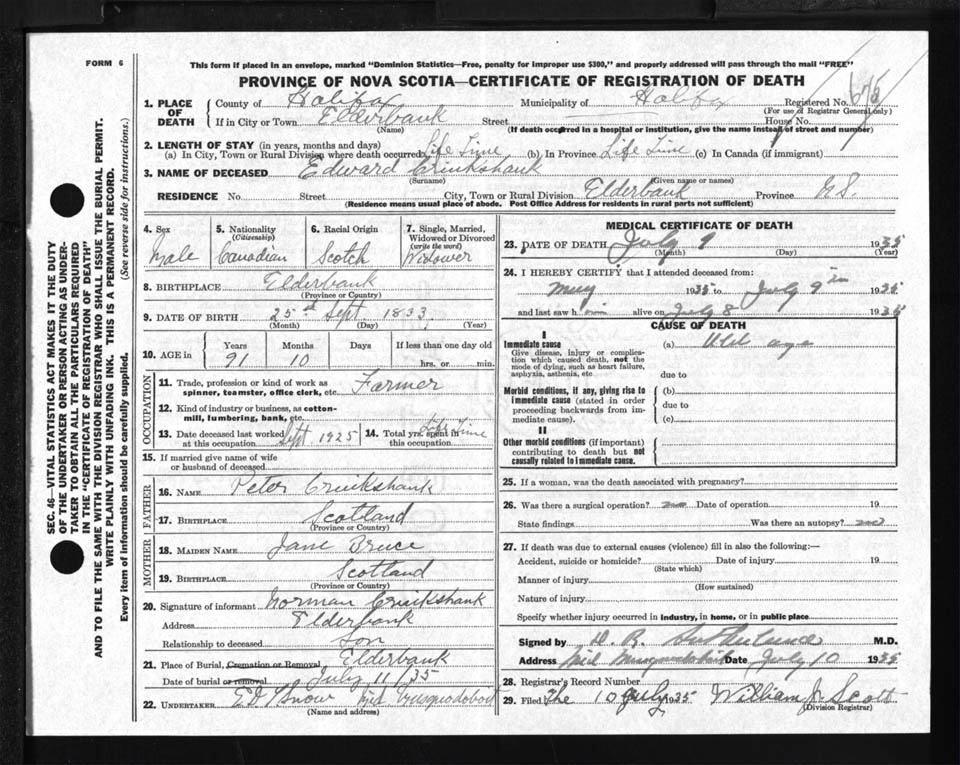 FORM 6
This form if placed in an envelope, marked "Dominion Statistics—Free, penalty for improper use $300," and properly addressed will pass through the mail "FREE"
PROVINCE OF NOVA SCOTIA—CERTIFICATE OF REGISTRATION OF DEATH
SEC. 46—VITAL STATISTICS ACT MAKES IT THE DUTY
OF THE UNDERTAKER OR PERSON ACTING AS UNDER-
TAKER TO OBTAIN ALL THE PARTICULARS REQUIRED
IN THE "CERTIFICATE OF REGISTRATION OF DEATH"
AND TO FILE THE SAME WITH THE DIVISION REGISTRAR WHO SHALL ISSUE THE BURIAL PERMIT.
WRITE PLAINLY WITH UNFADING INK. THIS IS A PERMANENT RECORD.
Every item of information should be carefully supplied. (See reverse side for instructions.)
1. PLACE OF DEATH County of Halifax Municipality of Halifax Registered No.
(For use of Registrar General only)
If in City or Town Elderbank Street House No.
(Name) (If death occurred in a hospital or institution, give the name instead of street and number)
2. LENGTH OF STAY (in years, months and days)
(a) In City, Town or Rural Division where death occurred Life Time (b) In Province Life Time (c) In Canada (if immigrant)
3. NAME OF DECEASED Edward Cruikshank
(Surname) (Given name or names)
RESIDENCE No. Street City, Town or Rural Division Elderbank Province N.S.
(Residence means usual place of abode. Post Office Address for residents in rural parts not sufficient)
4. Sex Male
5. Nationality (Citizenship) Canadian
6. Racial Origin Scotch
7. Single, Married, Widowed or Divorced (write the word) Widower
8. BIRTHPLACE Elderbank
(Province or Country)
9. DATE OF BIRTH 25th Sept. 1833
(Month) (Day) (Year)
10. AGE in Years 91 Months 10 Days If less than one day old hrs. or min.
OCCUPATION
11. Trade, profession or kind of work as spinner, teamster, office clerk, etc. Farmer
12. Kind of industry or business, as cotton-mill, lumbering, bank, etc.
13. Date deceased last worked at this occupation Sept. 1925
14. Total yrs. spent in this occupation Life Time
15. If married give name of wife or husband of deceased
FATHER
16. NAME Peter Cruikshank
17. BIRTHPLACE Scotland
(Province or Country)
MOTHER
18. MAIDEN NAME Jane Bruce
19. BIRTHPLACE Scotland
(Province or Country)
20. Signature of informant Norman Cruikshank
Address Elderbank
Relationship to deceased Son
21. Place of Burial, Cremation or Removal Elderbank
Date of burial or removal July 11/35
22. UNDERTAKER Ed Snow Mid Musquodoboit
(Name and address)
MEDICAL CERTIFICATE OF DEATH
23. DATE OF DEATH July 9 1935
(Month) (Day) (Year)
24. I HEREBY CERTIFY that I attended deceased from:
May 1935 to July 9th 1935
and last saw him alive on July 8 1935
CAUSE OF DEATH
I
Immediate cause (a) Old age
Give disease, injury or complication which caused death, not the mode of dying, such as heart failure, asphyxia, asthenia, etc. due to
Morbid conditions, if any, giving rise to immediate cause (stated in order proceeding backwards from immediate cause). (b) due to (c)
II
Other morbid conditions (if important) contributing to death but not causally related to immediate cause.
25. If a woman, was the death associated with pregnancy?
26. Was there a surgical operation? Date of operation 19
State findings Was there an autopsy?
27. If death was due to external causes (violence) fill in also the following:—
Accident, suicide or homicide? Date of injury 19
(State which)
Manner of injury
(How sustained)
Nature of injury
Specify whether injury occurred in industry, in home, or in public place
Signed by M.D.
Address Mid Musquodoboit Date July 10 1935
28. Registrar's Record Number
29. Filed The 10 July 1935 William J. Scott
(Division Registrar)